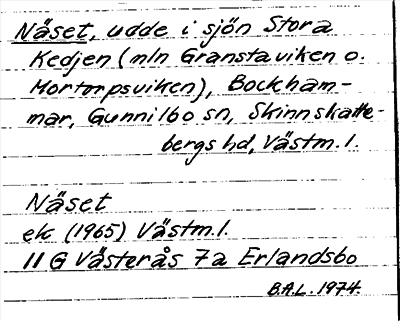 Näset, udde i sjön Stora
Kedjen (mln Granstaviken o.
Mortorpsviken), Bockham-
mar, Gunnilbo sn, Skinnskatte-
bergs hd, Västm. l.
Näset
ek (1965) Västm. l.
11 G Västerås 7a Erlandsbo
B.A.L. 1974.